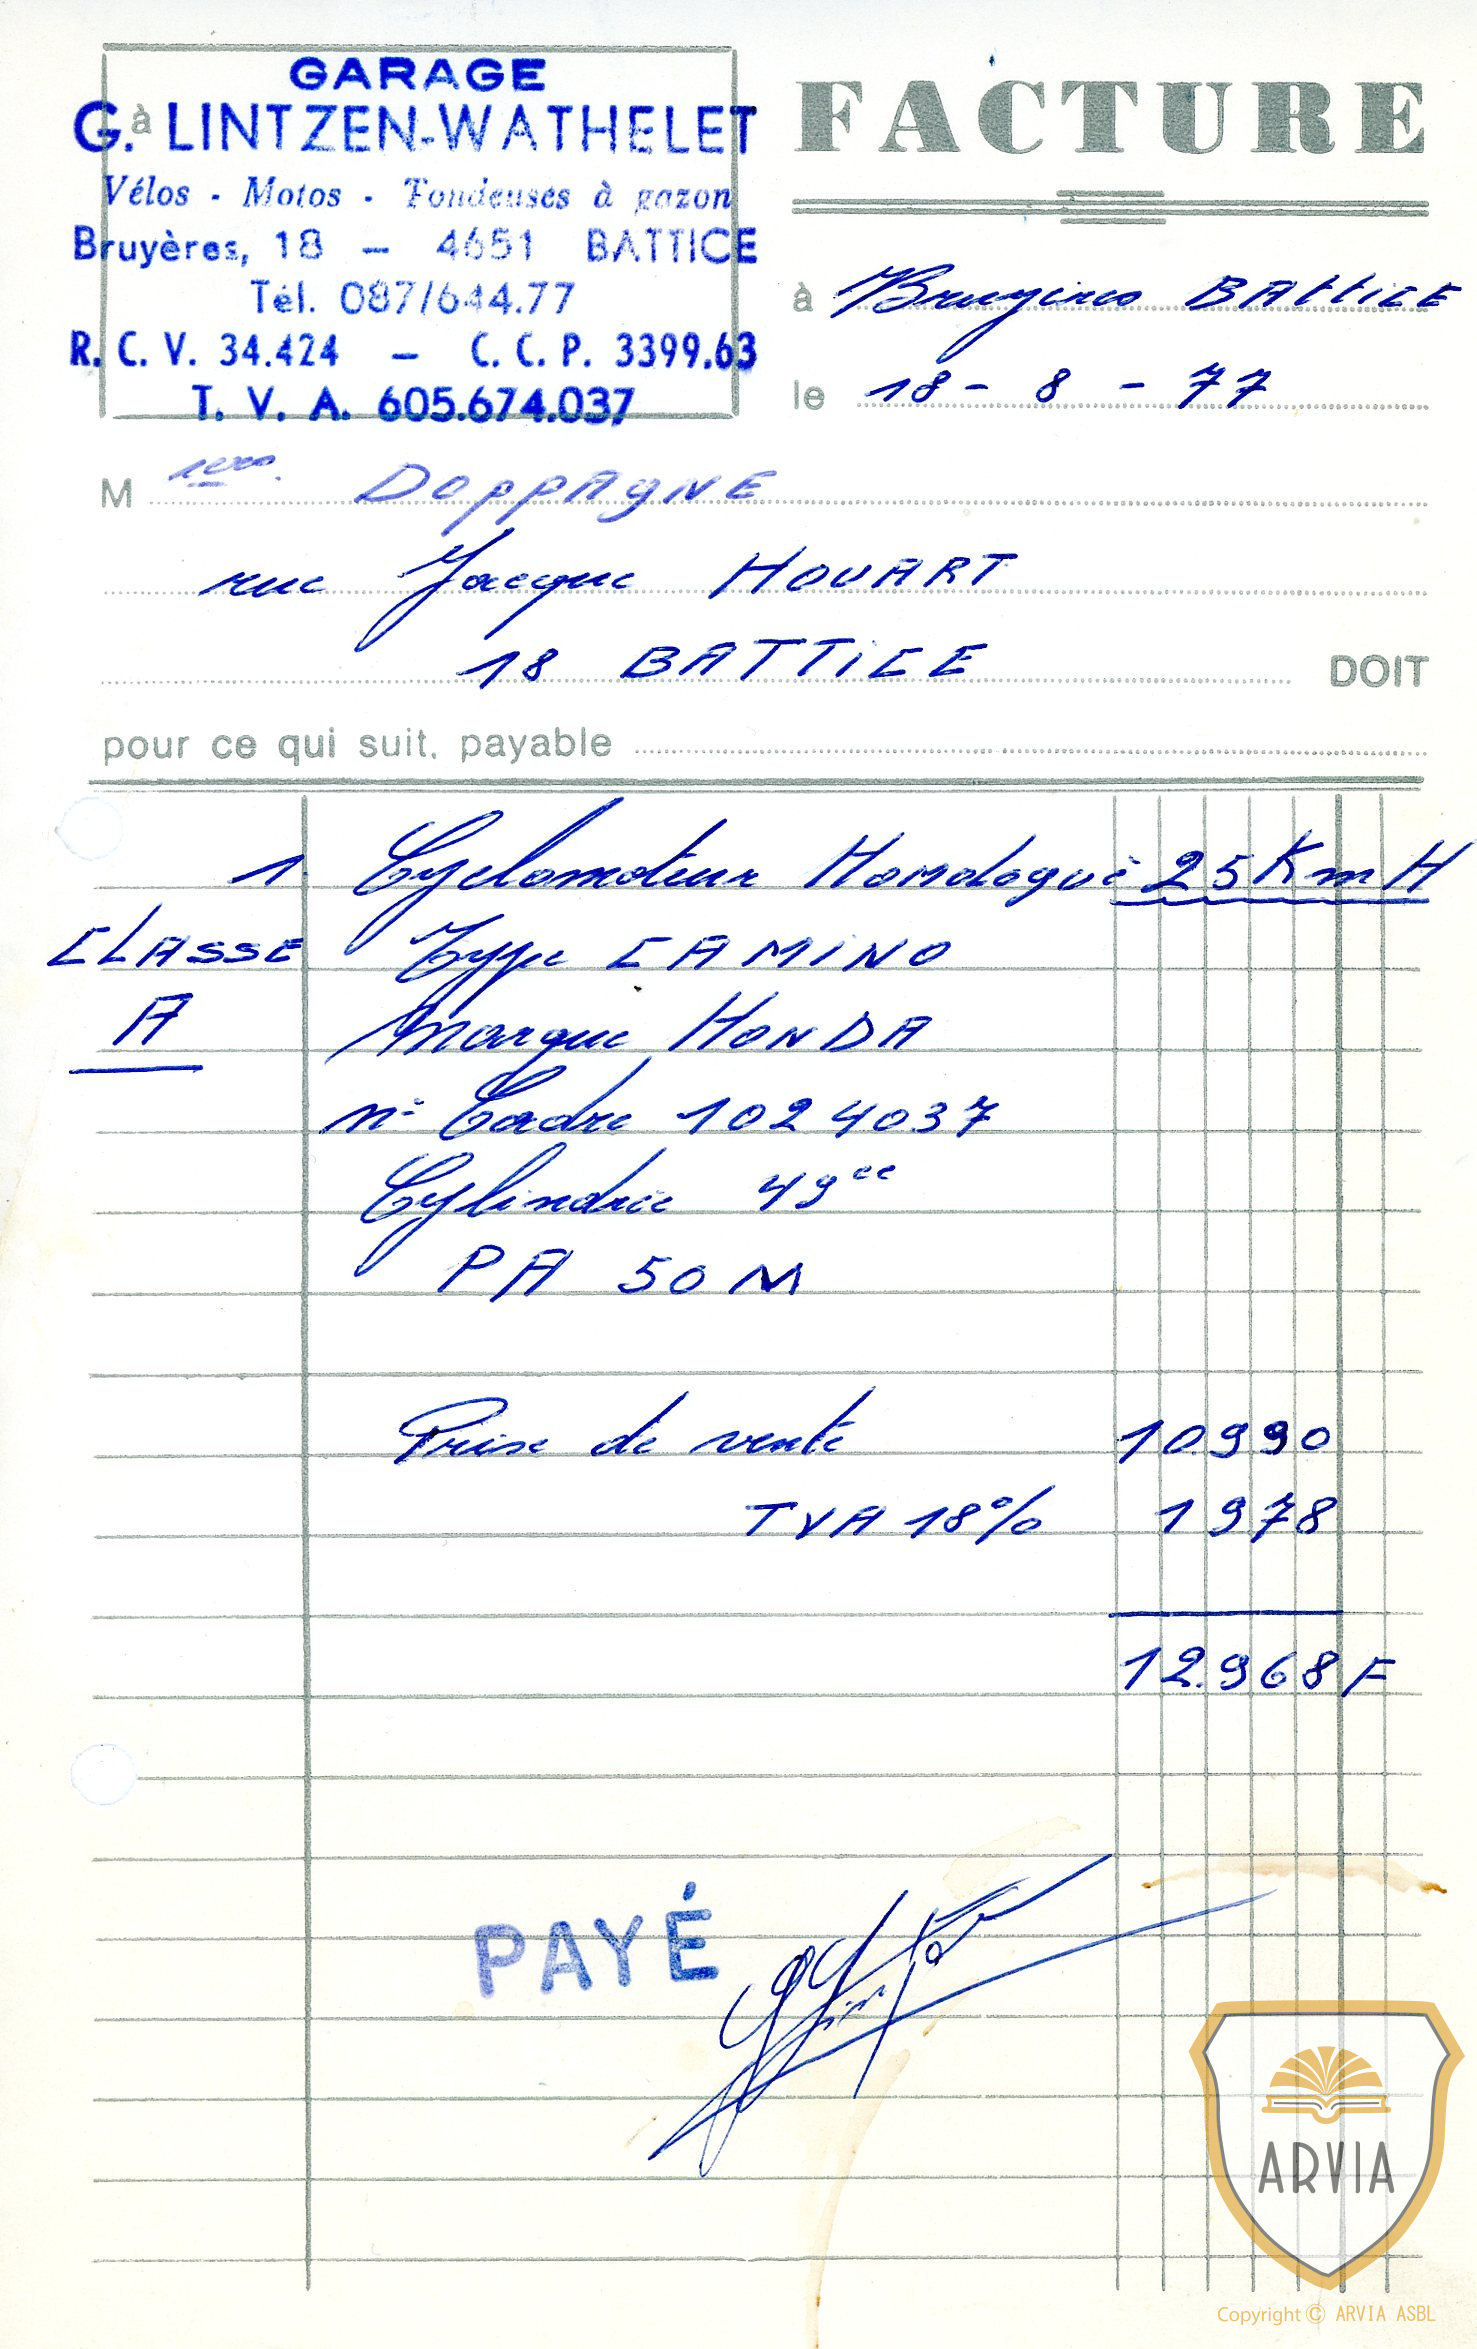 GARAGE
G. à LINTZEN-WATHELET
Vélos - Motos - Tondeuses à gazon
Bruyères, 18 - 4651 BATTICE
Tél. 087/644.77
R. C. V. 34.424 - C. C. P. 3399.63
T. V. A. 605.674.037
FACTURE
à Bruyères BATTICE
le 18 - 8 - 77
M DOPPAGNE
rue Jacque HOUART
18 BATTICE DOIT
pour ce qui suit, payable
1 Cyclomoteur Homologué 25 Km H
CLASSE Type CAMINO
A Marque HONDA
n° Cadre 1024037
Cylindrée 49cc
PA 50 M
Prise de vente 10.990
TVA 18% 1978
12.968 F
PAYÉ
ARVIA
Copyright © ARVIA ASBL